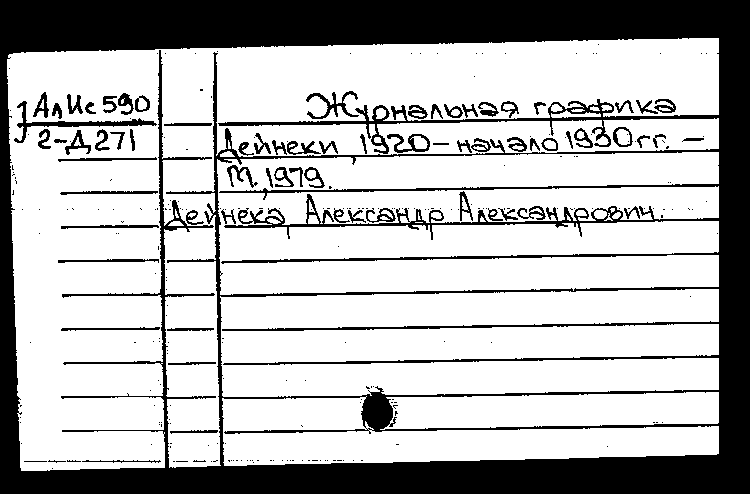 АлИс590
2-Д271
Журнальная графика
Дейнеки, 1920 – начало 1930 гг. –
М., 1979.
Дейнека, Александр Александрович.